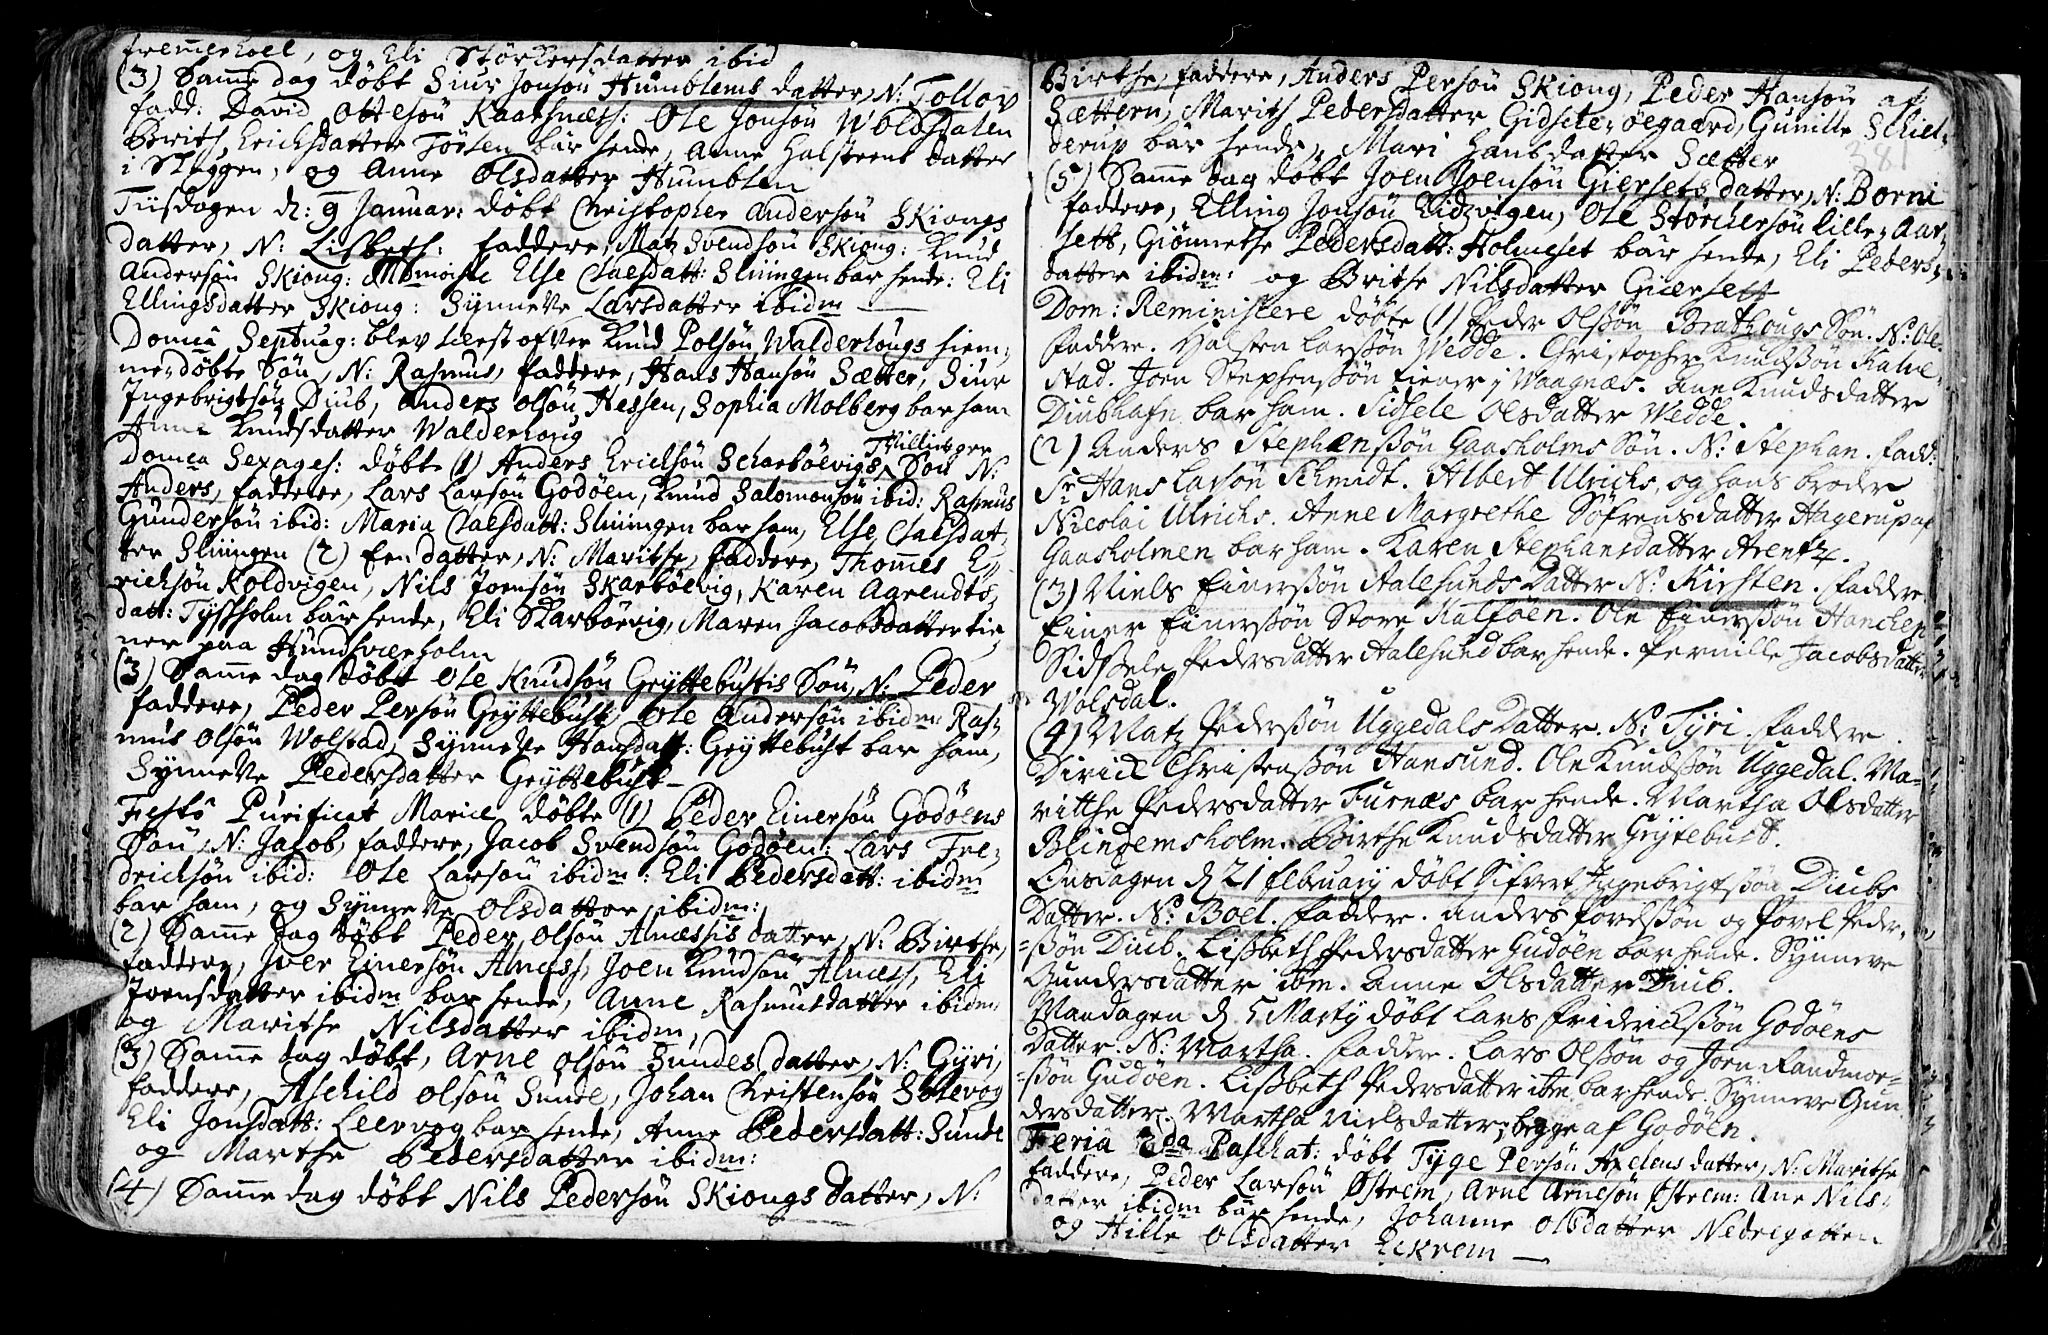 fremmerhoel, og Eli Störkersdatter ibid
(3) Samme dag döbt Siur Jonsön Humblems datter, N: Tollov
fadd: David Ottesön Kaarsnæss: Ole Jonsön Woldsdalen
Brith Erichsdatter bar hende, Anne Halsteens datter
i Skuggen, og Anne Olsdatter Humblen
Tiisdagen d: 9 Januar: döbt Christopher Andersön Skiongs
datter, N: Lisbeth: faddere, Matz Svendsön Skiong: Knud
Andersön Skiong: Else Claesdatt: Sluingen bar hende: Eli
Ellingsdatter Skiong: Synneve Larsdatter ibidm
Domca Septuag: blev læst ofver Knud Polsön Walderhougs hiem,
merdöbte Sön, N: Rasmus, faddere, Hans Hansön Sætter, Siur
Ingebrigtsön Diub, Anders Olsön Hessen, Sophia Molberg bar ham
Anne Knudsdatter Walderhoug
Domca Sexages: döbte (1) Anders Ericksön Scharböevigs Tvillinger Sön N:
Anders, faddere, Lars Larsön Godöen, Knud Salomonsön ibid: Rasmus
Gundersön ibid: Maria Claesdatt: Sluingen bar ham, Else Claesdat,
ter Sluingen (2) Een datter, N: Marithe, faddere, Thommes E,
ricksön Koldvigen, Nils Joensön Skarböevig, Karen Agrendts,
datt: Tyssholm bar hende, Eli Skarböevig, Maren Jacobsdatter tie,
ner paa Hundsværholm
(3) Samme dag döbt Ole Knudsön Gryttebustis Sön, N: Peder
faddere, Peder Persön Gryttebust, Ole Andersön ibidm Ras,
mus Olsön Wolstad, Synneve Hansdatt: Gryttebust bar ham,
Synneve Pedersdatter Gryttebust
Festo Purificat Mariæ döbte (1) Peder Einersön Godöens
Sön, N: Jacob, faddere, Jacob Svendsön Godöen: Lars Fre,
dricksön ibid: Ole Larsön ibidm: Eli Pedersdatt: ibidm
bar ham, og Synneve Olsdatter ibidm:
(2) Samme dag döbt Peder Olsön Alnæssis datter, N: Birthe,
faddere, Iver Einersön Alnæss, Joen Knudsön Alnæss, Eli
Joensdatter ibidm bar hende, Anne Rasmusdatter ibidm
og Marithe Nilsdatter ibidm,
(3) Samme dag döbt, Arne Olsön Sundes datter, N: Gyri,
faddere, Aschild Olsön Sunde, Johan Christensön Solevog
Eli Jonsdatt: Leervog bar hende, Anne Pedersdatt: Sunde
og Marthe Pedersdatter ibidm:
(4) Samme dag döbt Nils Pedersön Skiongs datter, N:
381
Birthe, faddere, Anders Persön Skiong, Peder Hansön af
Sættern, Marith Pedersdatter Gidsche öegaard, Gunille Schiel,
derup bar hende, Mari Hansdatter Sætter
(5) Samme dag döbt Joen Joensön Giersets datter, N: Borni
faddere, Elling Jonsön Eidzvigen, Ole Störchersön Lille Aar,
seth, Giönnethe Pedersdatt: Holmeset bar hende, Eli Peders,
datter ibidm: og Brithe Nilsdatter Giersett
Dom: Reminiscere döbte (1) Peder Olssön Brathougs Sön. N: Ole.
Faddere. Halsten Larssön Wedde. Christopher Knudssön Kalve-
stad. Joen Stephenssön tiener i Waagnæs. Ane Knudsdatter
Diubhafn bar ham. Sidsele Olsdatter Wedde.
(2) Anders Stephenssön Gaasholms Sön. N: Stephan. Fadd:
Sr Hans Larsön Schmidt. Albert Ulrichs, og hans broder
Nicolai Ulrichs. Anne Margrethe Söfrensdatter Hagerup af
Gaasholmen bar ham. Karen Stephansdatter Arentz.
(3) Niels Einerssön Aalesunds Datter N: Kirsten. Faddere.
Einer Einerssön Store Kalföen. Ole Einerssön Hancken
Sidssele Pedersdatter Aalesund bar hende. Pernille Jacobsdatter
Wolsdal.
(4) Matz Pederssön Uggedals Datter. N: Tyri. Faddere.
Dirick Christenssön Hansund. Ole Knudssön Uggedal. Ma-
ritthe Pedersdatter Furnæs bar hende. Martha Olsdatter
Blindemsholm. Birthe Knudsdatter Grytebust.
Onsdagen d 21 february döbt Sifvert Ingebrigtssön Diubs
Datter. N: Boel. Faddere. Anders Povelssön og Povel Peder-
=ssön Diub. Lissbeth Pedersdatter Gudöen bar hende. Synneve
Gundersdatter ibm. Anne Olsdatter Diub.
Mandagen d 5 Marty döbt Lars Friderickssön Godöens
Datter. N: Martha. Faddere. Lars Olssön og Joen Randmoe=
=ssön Gudöen. Lissbeth Pedersdatter ibm bar hende. Synneve Gun,
dersdatter. Martha Nielsdatter, begge af Godöen.
Feria 2da Paschat: döbt Tyge Persön Axelens datter, N: Marithe
faddere, Peder Larsön Östrem, Arne Arnesön Östrem: Ane Nils,
datter ibidm bar hende, Johanne Olsdatter Nedregotten
og Hille Olsdatter Eckrem